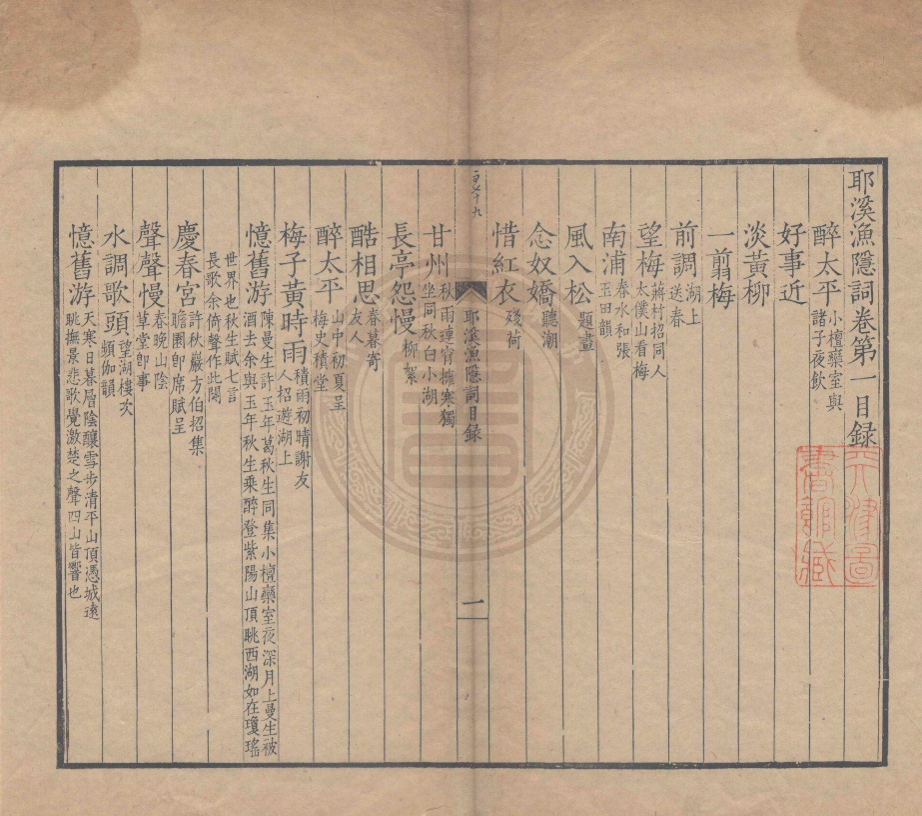 耶溪漁隱詞卷第一目録
醉太平 小檀欒室與諸子夜飲
好事近
淡黃柳
一翦梅
前調 湖上送春
望梅 蔣村招同人太僕山看梅
南浦 春水和張玉田韻
風入松 題畫
念奴嬌 聽潮
惜紅衣 殘荷
耶溪漁隱詞目録
一
甘州 秋雨連宵擁寒獨坐同秋白小湖
長亭怨慢 柳絮
酷相思 春暮寄友人
醉太平 山中初夏呈梅史積堂
梅子黃時雨 積雨初晴謝友人招遊湖上
憶舊游 陳曼生許玉年葛秋生同集小檀欒室夜深月上曼生被酒去余與玉年秋生乘醉登紫陽山頂眺西湖如在瓊瑤
世界也秋生賦七言長歌余倚聲作此闋
慶春宮 許秋巖方伯招集瞻園即席賦呈
聲聲慢 春晚山陰草堂即事
水調歌頭 望湖樓次頻伽韻
憶舊游 天寒日暮層陰釀雪步清平山頂憑城遠眺撫景悲歌覺激楚之聲四山皆響也